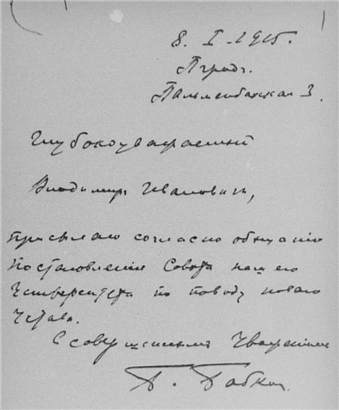 8. I. 1915.
Пгрдъ.
Пальменбахская 3.
Глубокоуважаемый
Владимиръ Ивановичъ,
присылаю согласно обѣщанію
постановленіе Совѣта нашего
Университета по поводу новаго
Устава.
Съ совершеннымъ уваженіемъ